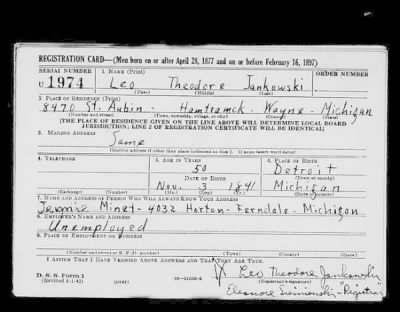 REGISTRATION CARD—(Men born on or after April 28, 1877 and on or before February 16, 1897)
SERIAL NUMBER 1. NAME (Print) ORDER NUMBER
U 1974 Leo Theodore Jankowski
(First) (Middle) (Last)
2. PLACE OF RESIDENCE (Print)
8970 St. Aubin - Hamtramck - Wayne - Michigan
(Number and street) (Town, township, village, or city) (County) (State)
[THE PLACE OF RESIDENCE GIVEN ON THE LINE ABOVE WILL DETERMINE LOCAL BOARD
JURISDICTION; LINE 2 OF REGISTRATION CERTIFICATE WILL BE IDENTICAL]
3. MAILING ADDRESS
Same
(Mailing address if other than place indicated on line 2. If same insert word same)
4. TELEPHONE 5. AGE IN YEARS 6. PLACE OF BIRTH
50 Detroit
DATE OF BIRTH (Town or county)
Nov. 3 1891 Michigan
(Exchange) (Number) (Mo.) (Day) (Yr.) (State or country)
7. NAME AND ADDRESS OF PERSON WHO WILL ALWAYS KNOW YOUR ADDRESS
Minet - 4032 Horton - Ferndale - Michigan
8. EMPLOYER'S NAME AND ADDRESS
Unemployed
9. PLACE OF EMPLOYMENT OR BUSINESS
(Number and street or R. F. D. number) (Town) (County) (State)
I AFFIRM THAT I HAVE VERIFIED ABOVE ANSWERS AND THAT THEY ARE TRUE.
D. S. S. Form 1
(Revised 4-1-42) (over) X Leo Theodore Jankowski
(Registrant's signature)
Eleanore "Registrar"